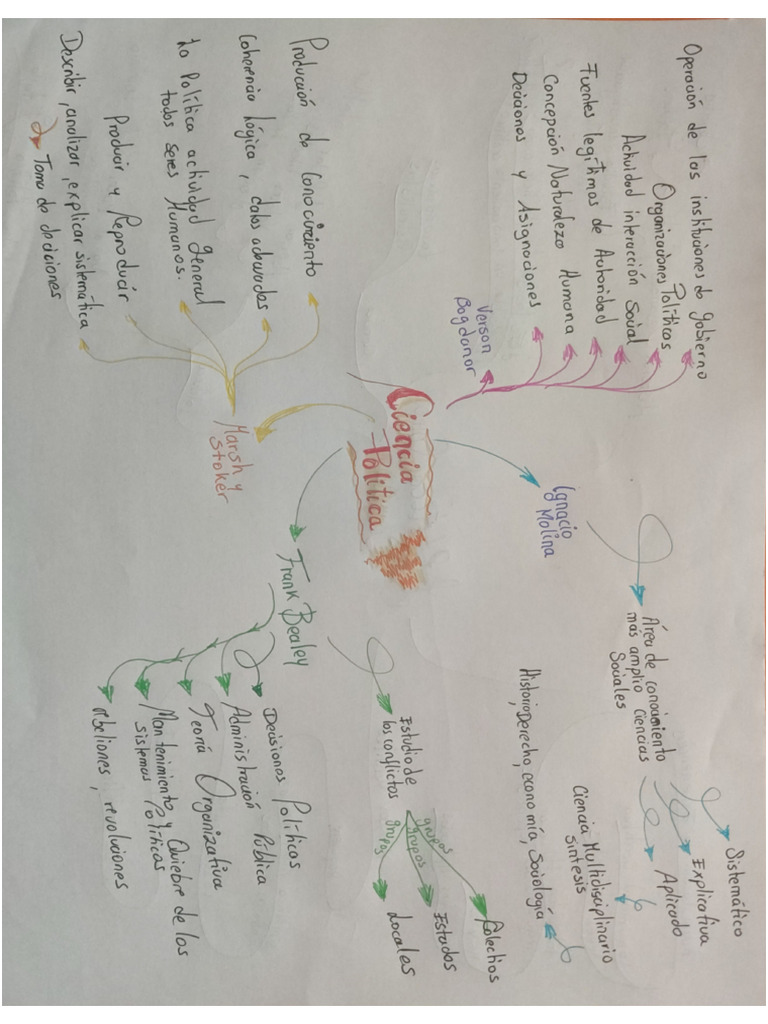 Ciencia
Política
Verson
Bogdanor
Operación de las instituciones de gobierno
Organizaciones Políticos
Actividad interacción Social
Fuentes legítimas de Autoridad
Concepción Naturaleza Humana
Deciciones y Asignaciones
Marsh y
Stoker
Producción de Conocimiento
Coherencia Lógica, datos adecuados
La Política actividad general
todos seres Humanos.
Producir y Reproducir
Describir, analizar, explicar sistemática
Toma de deciciones
Ignacio
Molina
Área de conocimiento
más amplio Ciencias
Sociales
Sistemático
Explicativa
Aplicado
Ciencia Multidisciplinario
síntesis
Historia, Derecho, economía, Sociología
Frank Bealey
Estudio de
los conflictos
grupos
grupos
grupos
Colectios
Estados
Locales
Decisiones Políticas
Administración Pública
Teoría Organizativa
Mantenimiento y Quiebre de los
sistemas Políticas
rebeliones, revoluciones